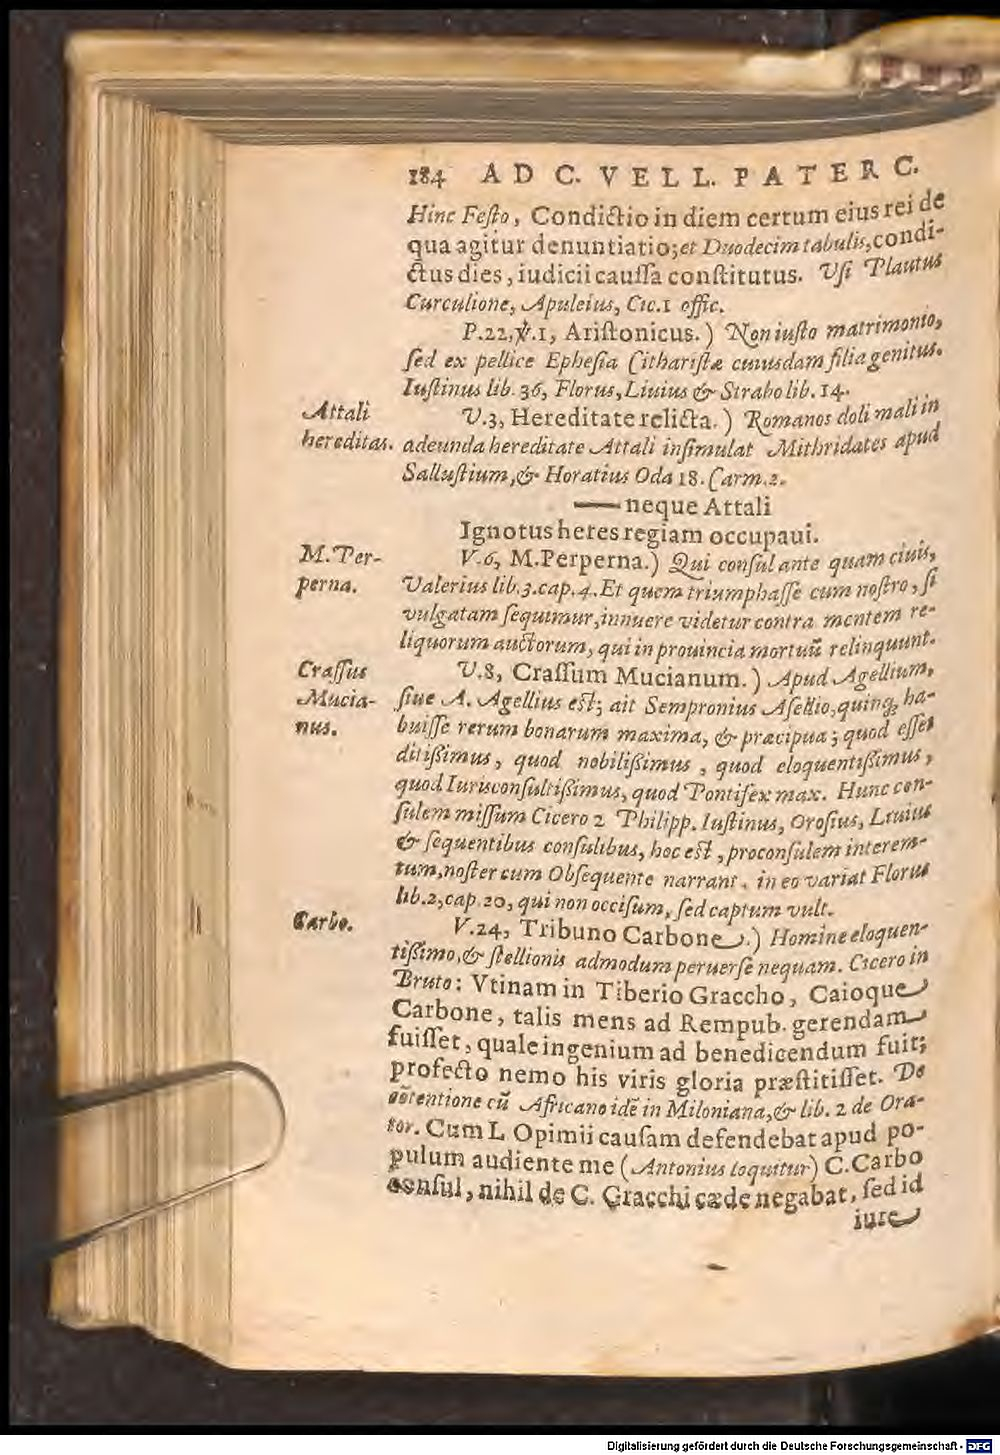 184 AD C. VELL. PATERC.
Hinc Feſto, Condictio in diem certum eius rei de
qua agitur denuntiatio; et Duodecim tabulis, condi-
ctus dies, iudicii cauſſa conſtitutus. Vſi Plautus
Curculione, Apuleius, Cic. 1 offic.
P. 22, ꝟ. 1, Ariſtonicus.) Non iuſto matrimonio,
ſed ex pellice Epheſia Cithariſtæ cuiusdam filia genitus.
Iuſtinus lib. 36, Florus, Liuius & Strabo lib. 14.
Attali
hereditas.
V. 3, Hereditate relicta.) Romanos doli mali in
adeunda hereditate Attali inſimulat Mithridates apud
Salluſtium, & Horatius Oda 18. Carm. 2.
— neque Attali
Ignotus heres regiam occupaui.
M. Per-
perna.
V. 6, M. Perperna.) Qui conſul ante quam ciuis,
Valerius lib. 3. cap. 4. Et quem triumphaſſe cum noſtro, ſi
vulgatam ſequimur, innuere videtur contra mentem re-
liquorum auctorum, qui in prouincia mortuū relinquunt.
Craſſus
Mucia-
nus.
V. 8, Craſſum Mucianum.) Apud Agellium,
ſiue A. Agellius eſt; ait Sempronius Aſellio, quinqꝫ ha-
buiſſe rerum bonarum maxima, & præcipua; quod eſſet
ditißimus, quod nobilißimus, quod eloquentißimus,
quod Iurisconſultißimus, quod Pontifex max. Hunc con-
ſulem miſſum Cicero 2 Philipp. Iuſtinus, Oroſius, Liuius
& ſequentibus conſulibus, hoc eſt, proconſulem interem-
tum, noſter cum Obſequente narrant. in eo variat Florus
lib. 2, cap. 20, qui non occiſum, ſed captum vult.
Carbo.
V. 24, Tribuno Carbone.) Homine eloquen-
tißimo, & ſtellionis admodum peruerſe nequam. Cicero in
Bruto: Vtinam in Tiberio Graccho, Caioque
Carbone, talis mens ad Rempub. gerendam
fuiſſet, quale ingenium ad benedicendum fuit;
profecto nemo his viris gloria præſtitiſſet. De
cōtentione cū Africano idē in Miloniana, & lib. 2 de Ora-
tor. Cum L Opimii cauſam defendebat apud po-
pulum audiente me (Antonius loquitur) C. Carbo
conſul, nihil de C. Gracchi cæde negabat, ſed id
iure
Digitalisierung gefördert durch die Deutsche Forschungsgemeinschaft - DFG